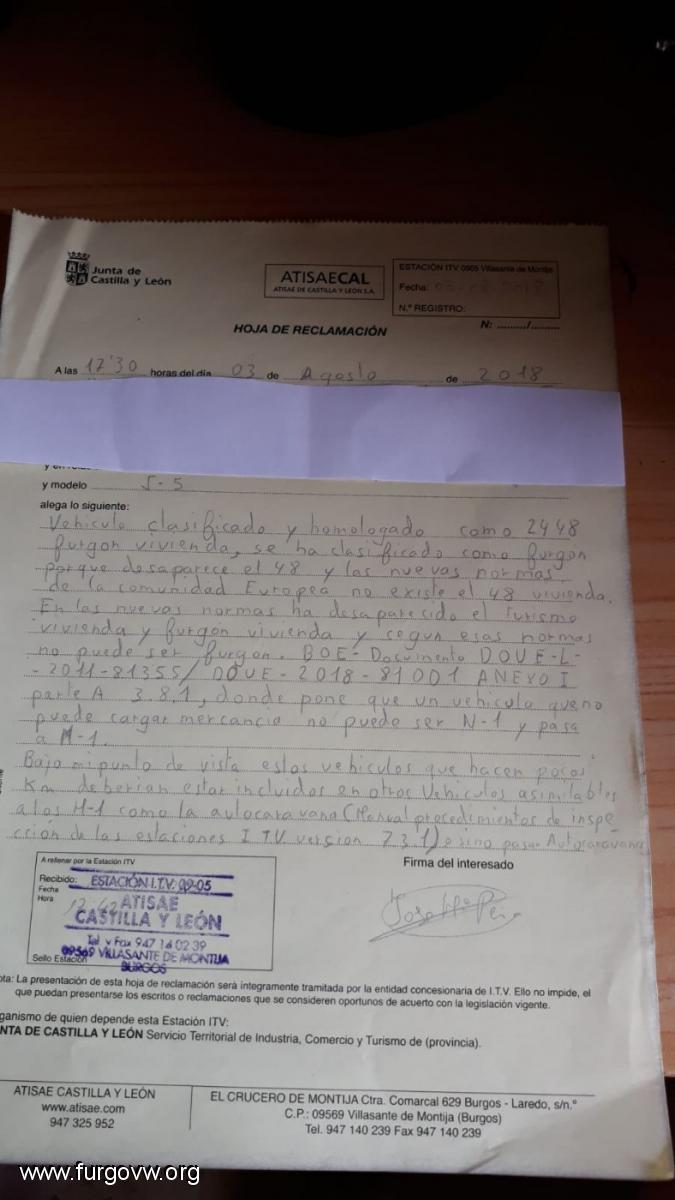 Junta de
Castilla y León
ATISAECAL
ATISAE DE CASTILLA Y LEÓN S.A.
ESTACIÓN ITV 0905 Villasante de Montija
Fecha:
N.º REGISTRO:
N: ........./.........
HOJA DE RECLAMACIÓN
A las 12'30 horas del día 03 de Agosto de 2018
y modelo J-5
alega lo siguiente:
Vehiculo clasificado y homologado como 2448
furgon vivienda, se ha clasificado como furgon
porque desaparece el 48 y las nuevas normas
de la comunidad Europea no existe el 48 vivienda.
En las nuevas normas ha desaparecido el turismo
vivienda y furgon vivienda y segun esas normas
no puede ser furgon. BOE-Documento DOUE-L-
-2011-81355/DOUE-2018-81001 ANEXO I
parte A 3.8.1, donde pone que un vehiculo que no
puede cargar mercancia no puede ser N-1 y pasa
a M-1.
Bajo mi punto de vista estos vehiculos que hacen pocos
Km deberian estar incluidos en otros Vehiculos asimilables
a los M-1 como la autocaravana (Manual procedimientos de inspe-
cción de las estaciones I.T.V version 7.3.1) o sino pasar Autocaravana
A rellenar por la Estación ITV
Recibido:
Fecha
Hora
12:42
Sello Estación
ESTACIÓN I.T.V. 09-05
ATISAE
CASTILLA Y LEÓN
Tel y Fax 947 14 02 39
09569 VILLASANTE DE MONTIJA
BURGOS
Firma del interesado
Jose Mª Peña
ota: La presentación de esta hoja de reclamación será íntegramente tramitada por la entidad concesionaria de I.T.V. Ello no impide, el
que puedan presentarse los escritos o reclamaciones que se consideren oportunos de acuerdo con la legislación vigente.
ganismo de quien depende esta Estación ITV:
NTA DE CASTILLA Y LEÓN Servicio Territorial de Industria, Comercio y Turismo de (provincia).
ATISAE CASTILLA Y LEÓN
www.atisae.com
947 325 952
EL CRUCERO DE MONTIJA Ctra. Comarcal 629 Burgos - Laredo, s/n.º
C.P.: 09569 Villasante de Montija (Burgos)
Tel. 947 140 239 Fax 947 140 239
www.furgovw.org